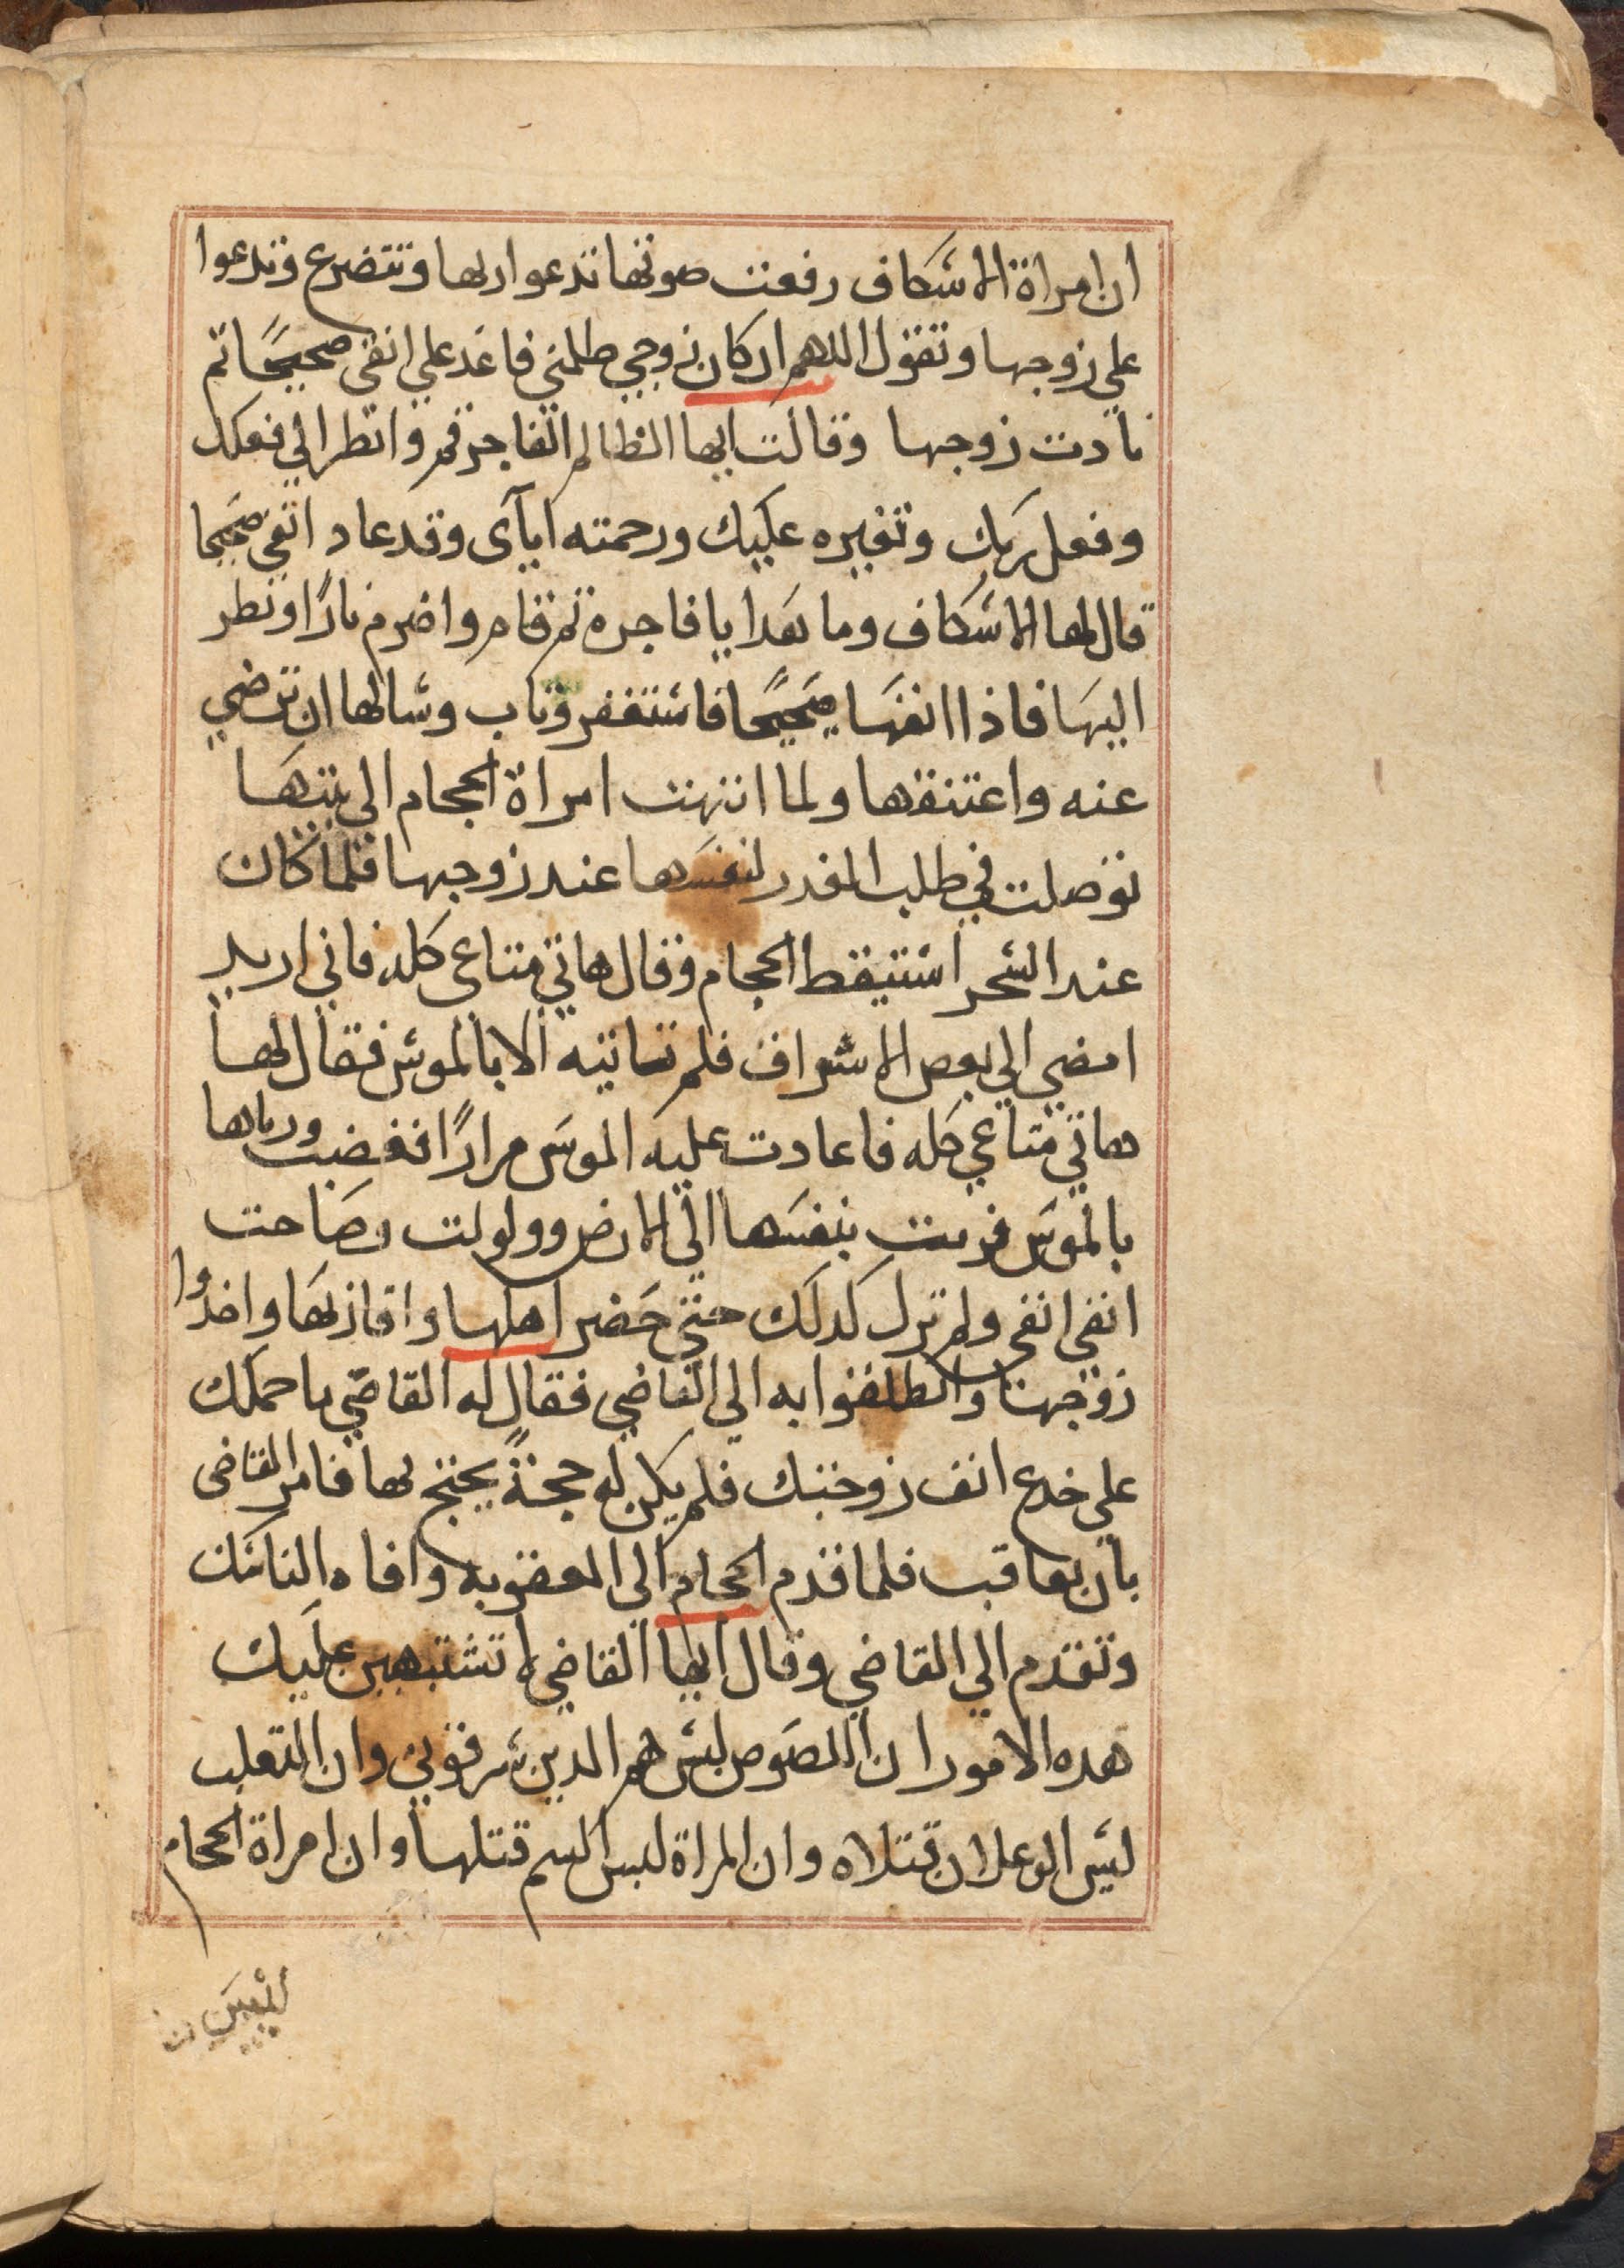 ان امراة الاسكاف رفعت صوتها تدعوا ربها وتتضرع وتدعوا
علي زوجها وتقول اللهم ان كان زوجي ظلمني فاعد علي انفي صحيحًا ثم
نادت زوجها وقالت ايها الظالم الفاجر قم وانظر الي فعلك
وفعل ربك وتغيره عليك ورحمته اياي وقد عاد انفي صحيحا
قال لها الاسكاف وما هدا يا فاجرة ثم قام واضرم نارًا ونظر
اليها فاذا انفها صحيحًا فاستغفر وتاب وسالها ان ترضي
عنه واعتنقها ولما انتهت امراة الحجام الي بيتها
توصلت في طلب العذر لنفسها عند زوجها فلما كان
عند السحر استيقظ الحجام وقال هاتي متاعي كله فاني اريد
امضي الي بعض الاشراف فلم تاتيه الا بالموس فقال لها
هاتي متاعي كله فاعادت عليه الموس مرارًا فغضب ورماها
بالموس فرمت بنفسها الي الارض وولولت وصاحت
انفي انفي ولم تزل كدلك حتي حضر اهلها واقاربها واخدوا
زوجها وانطلقوا به الي القاضي فقال له القاضي ما حملك
علي جدع انف زوجتك فلم يكن له حجة يحتج بها فامر القاضي
بان يعاقب فلما قدم الحجام الي العقوبه وافاه الناسك
وتقدم الي القاضي وقال ايها القاضي لا تشتبهين عليك
هده الامور ان اللصوص ليس هم الدين سرقوني وان الثعلب
ليس الوعلان قتلاه وان المراة ليس السم قتلها وان امراة الحجام
ليس